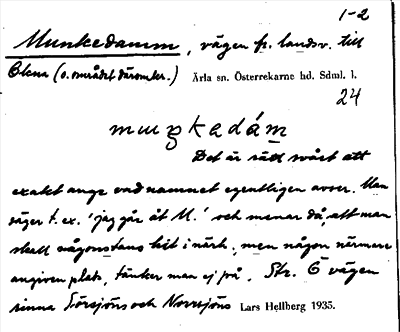 1-2
Munkedamm, vägen fr. landsv. till
Elena (o. området däromkr.) Ärla sn. Österrekarne hd. Sdml. l.
24
muŋkadám
Det är rätt svårt att
exakt ange vad namnet egentligen avser. Man
säger t. ex. 'jag går åt M.' och menar då, att man
skall någonstans hit i närh., men någon närmare
angiven plats, tänker man ej på. Str. Ö vägen
Sörsjön och Norrsjön Lars Hellberg 1935.